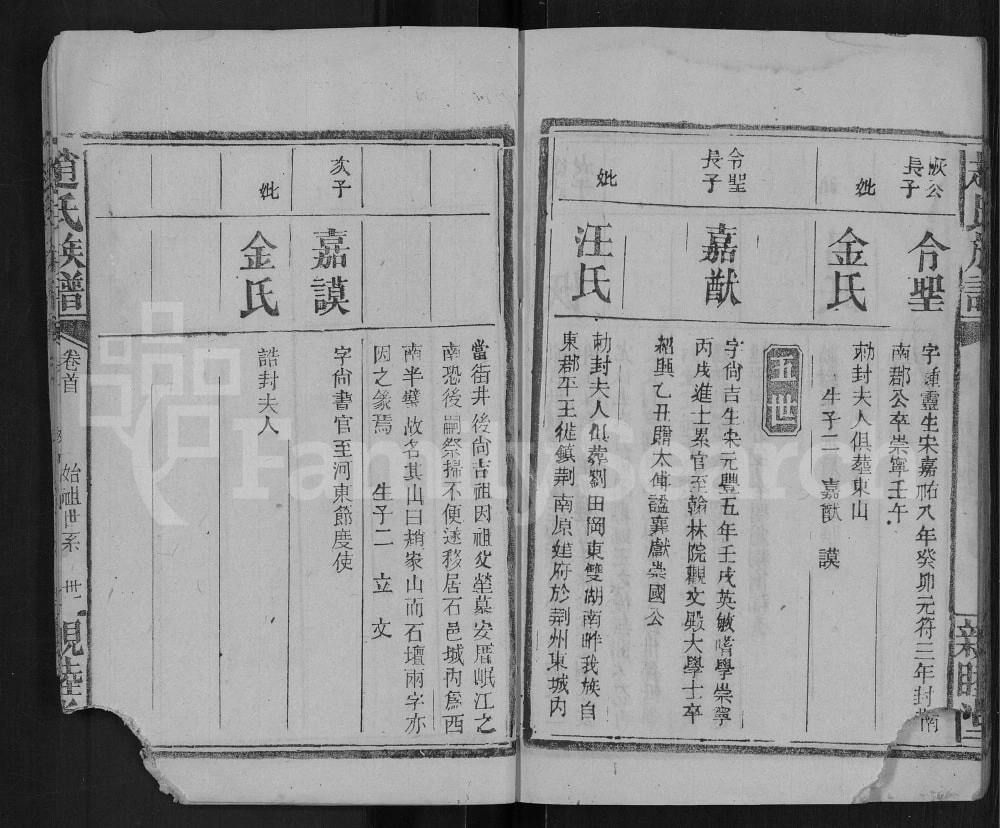 灰公長子
令聖
字鍾靈生宋嘉祐八年癸卯元符三年封南
南郡公卒崇寧壬午
妣
金氏
勅封夫人俱葬東山
生子二 嘉猷 謨
五世
令聖長子
嘉猷
字尙吉生宋元豐五年壬戌英敏嗜學崇寧
丙戌進士累官至翰林院觀文殿大學士卒
紹興乙丑贈太傅謚襄獻崇國公
妣
汪氏
勅封夫人俱葬劉田岡東雙湖南畔我族自
東郡平王徙鎮荆南原建府於荆州東城內
當街井後尙吉祖因祖父塋墓安厝岷江之
南恐後嗣祭掃不便遂移居石邑城內爲西
南半壁故名其山曰趙家山而石壇兩字亦
因之彖焉 生子二 立 文
次子
嘉謨
字尙書官至河東節度使
妣
金氏
誥封夫人
趙氏族譜
卷首
始祖世系
親睦堂
FamilySearch